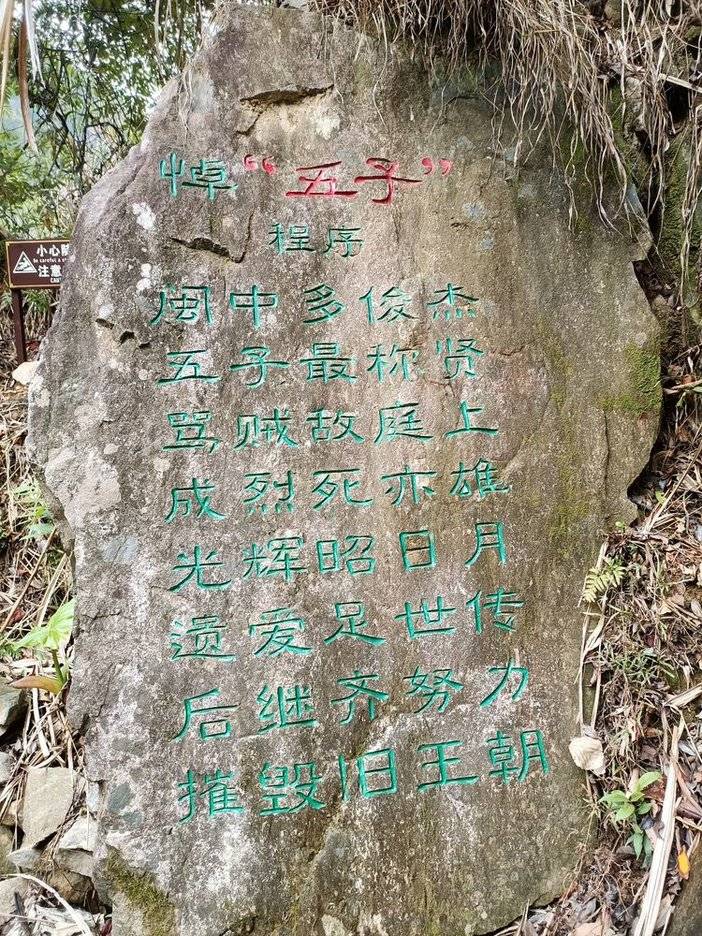 悼“五子”
程序
闽中多俊杰
五子最称贤
骂贼敌庭上
成烈死亦雄
光辉昭日月
遗爱足世传
后继齐努力
摧毁旧王朝
小心
注意